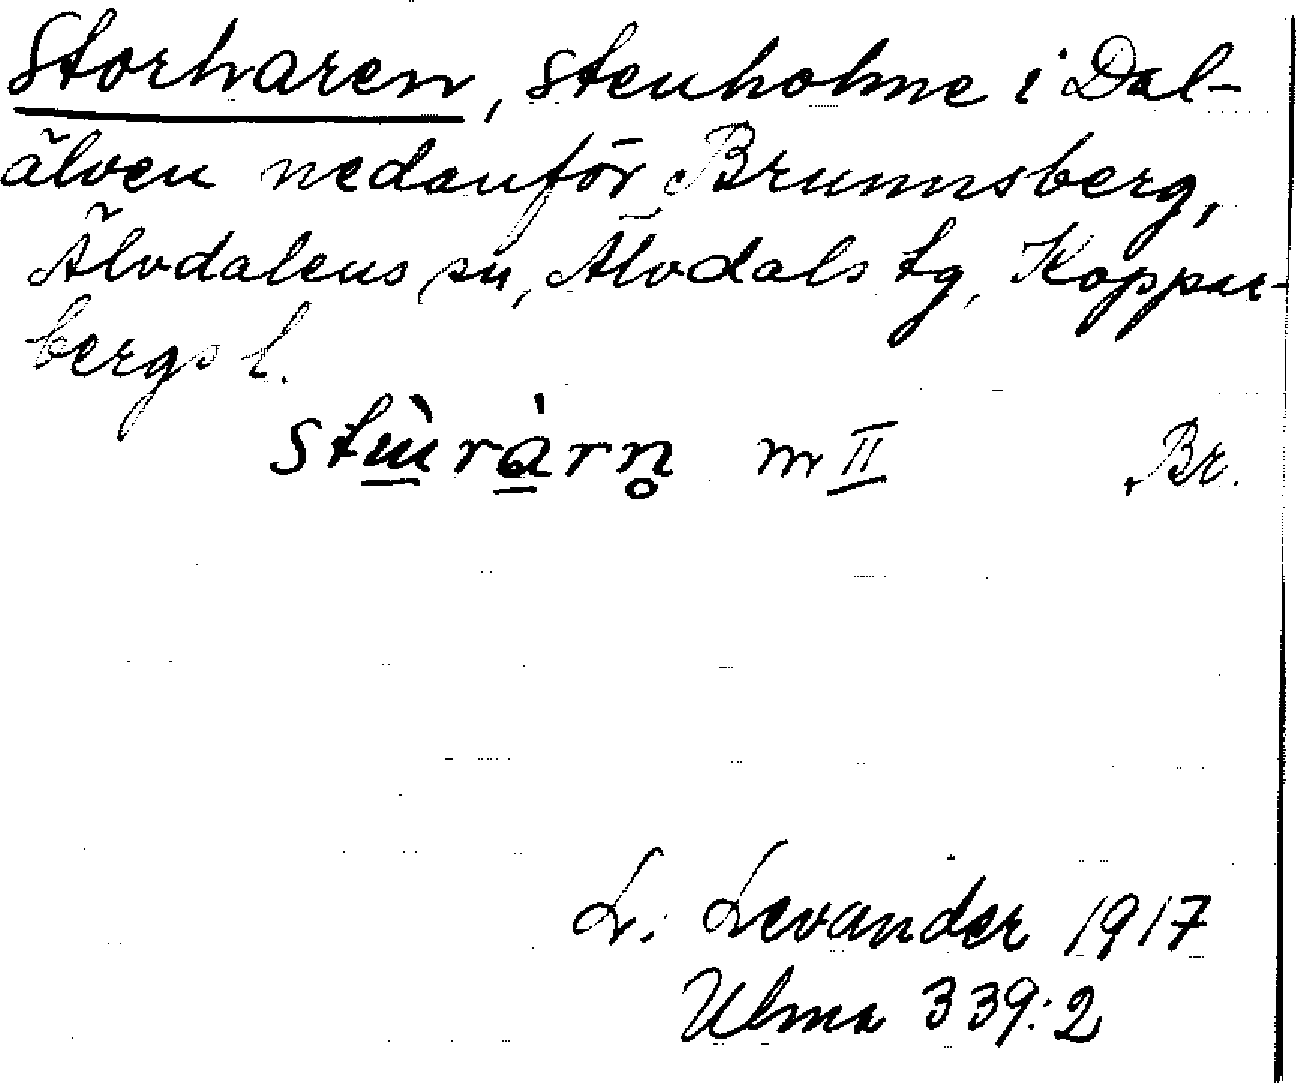 Storharen, stenholme i Dal-
älven nedanför Brunnsberg,
Älvdalens sn, Älvdals tg, Koppar-
bergs l.
m II Br.
L. Levander 1917
Ulma 339:2